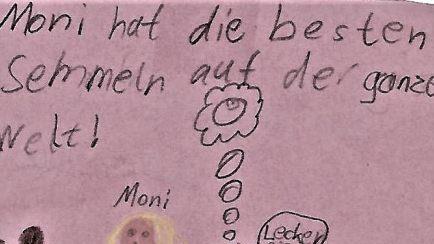 Moni hat die besten
Semmeln auf der ganze
Welt!
Moni
Lecker